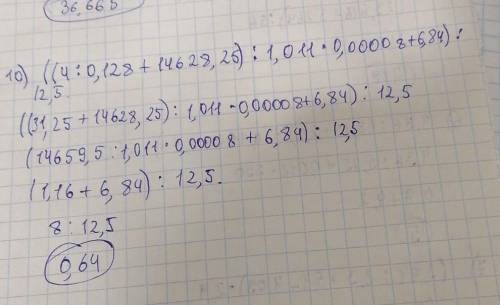 36,665
10) ((4 : 0,128 + 14628,25) : 1,011 · 0,00008 + 6,84) :
12,5.
((31,25 + 14628,25) : 1,011 · 0,00008 + 6,84) : 12,5
(14659,5 : 1,011 · 0,00008 + 6,84) : 12,5
(1,16 + 6,84) : 12,5.
8 : 12,5
0,64